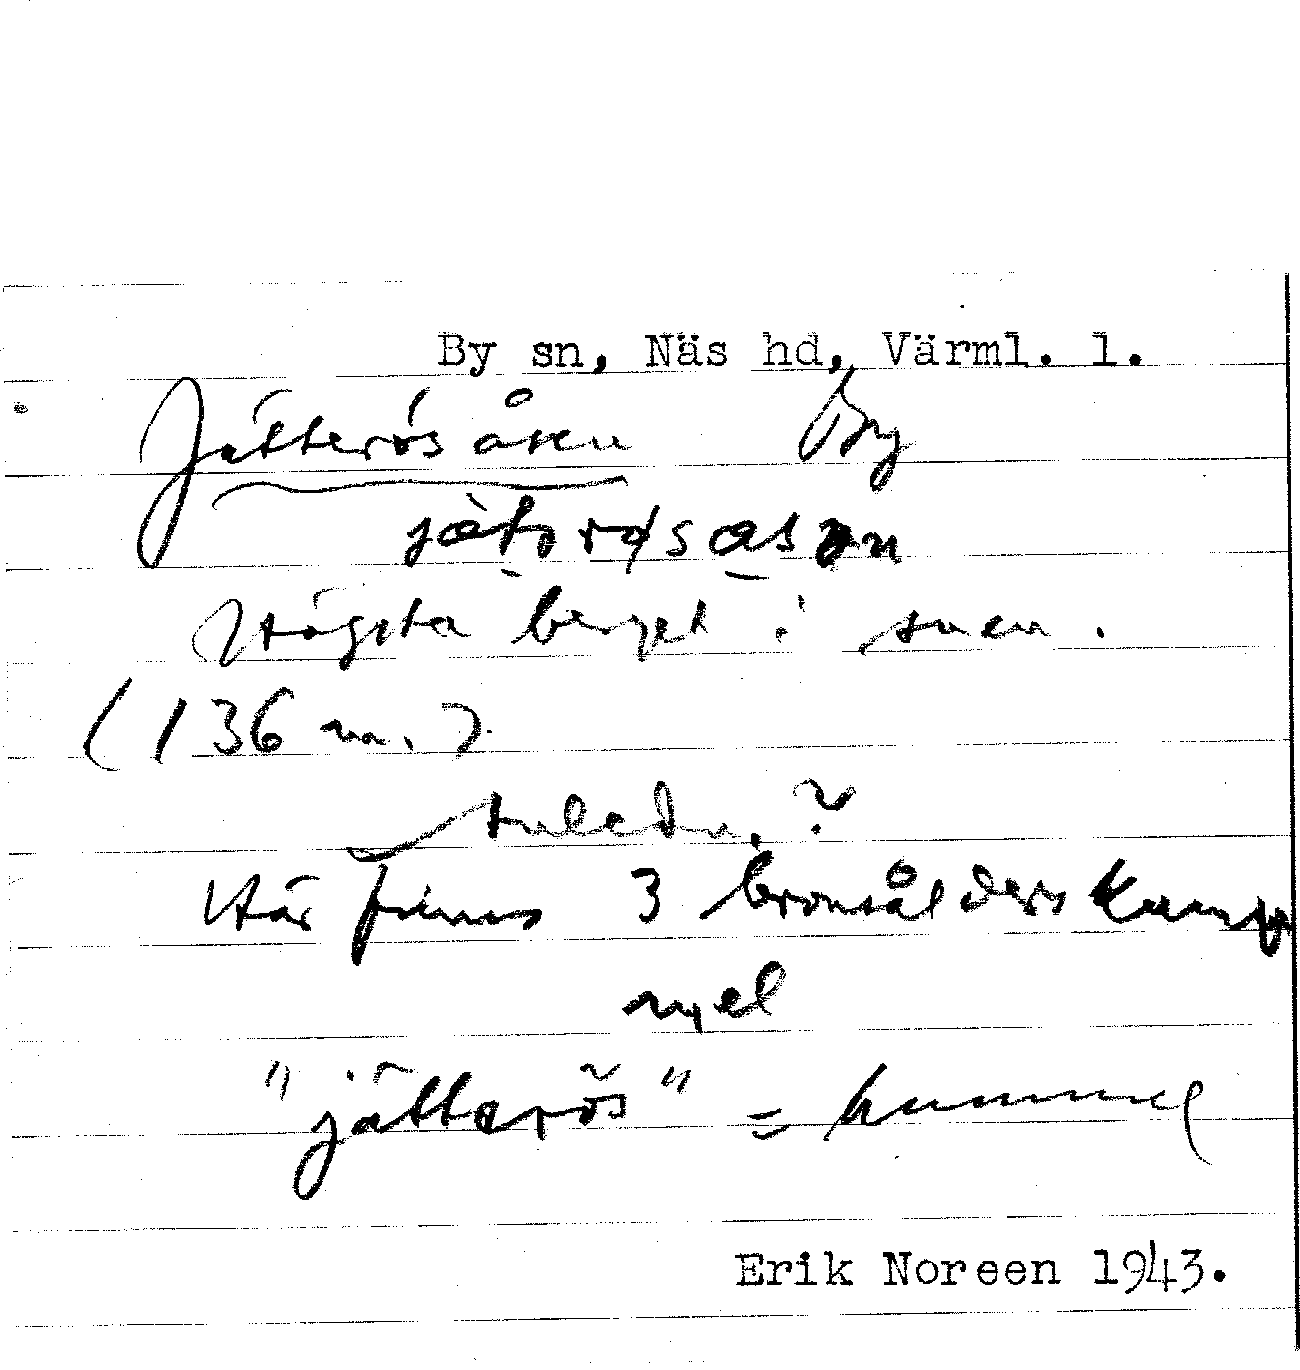 By sn, Näs hd, Värml. l.
Jätterösåsen By
jätərøsasən
Högsta berget i snen.
(136 m.)
?
Här finns 3 bronsålderskump
nyel
"jätterös" = kummel
Erik Noreen 1943.